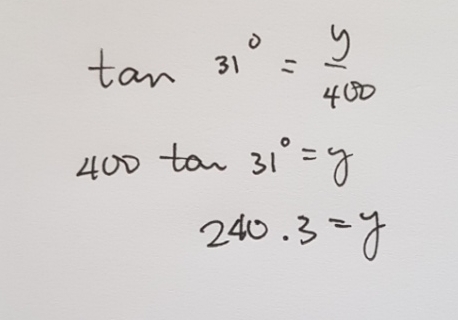 tan 31° = y/400
400 tan 31° = y
240.3 = y